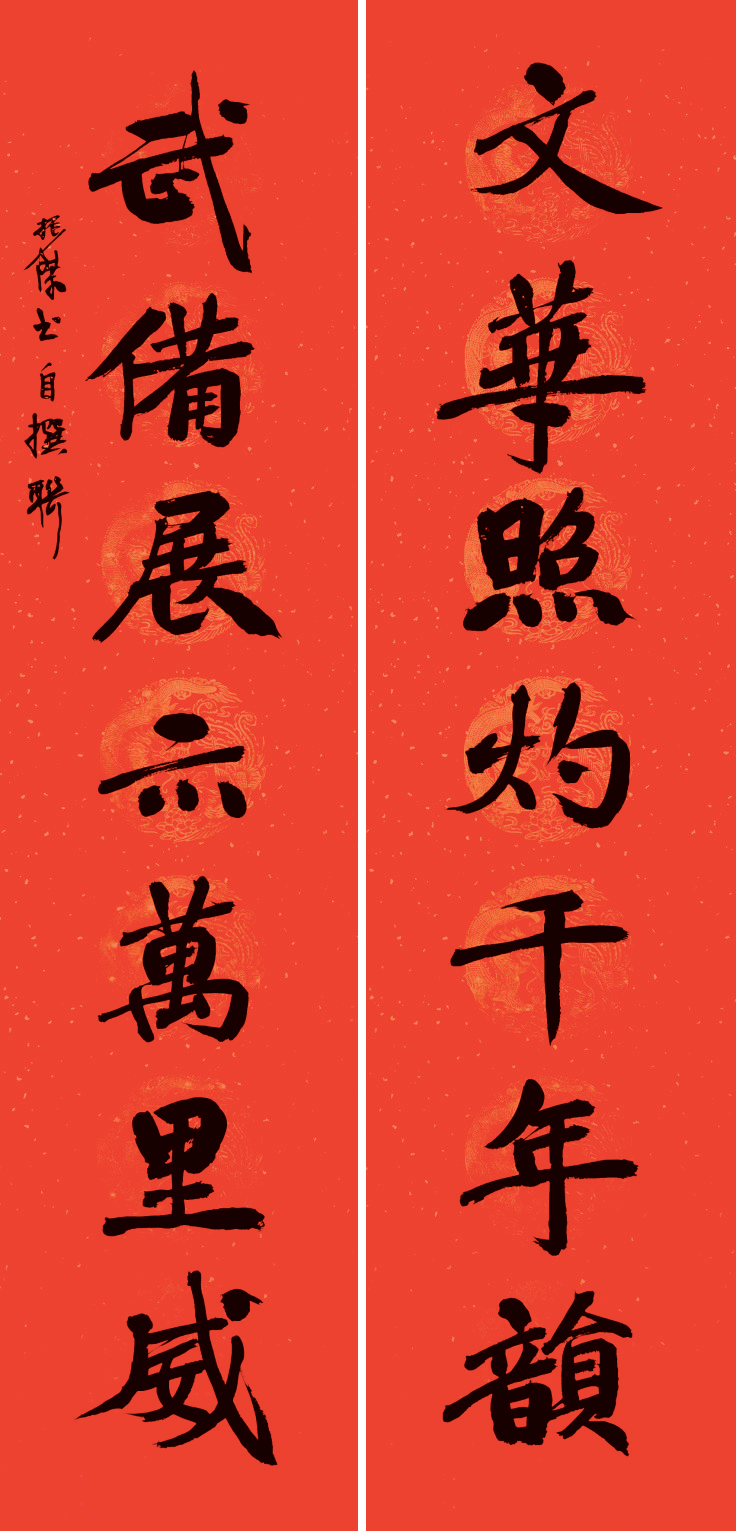 文華照灼千年韻
武備展示萬里威
振傑書自撰聯